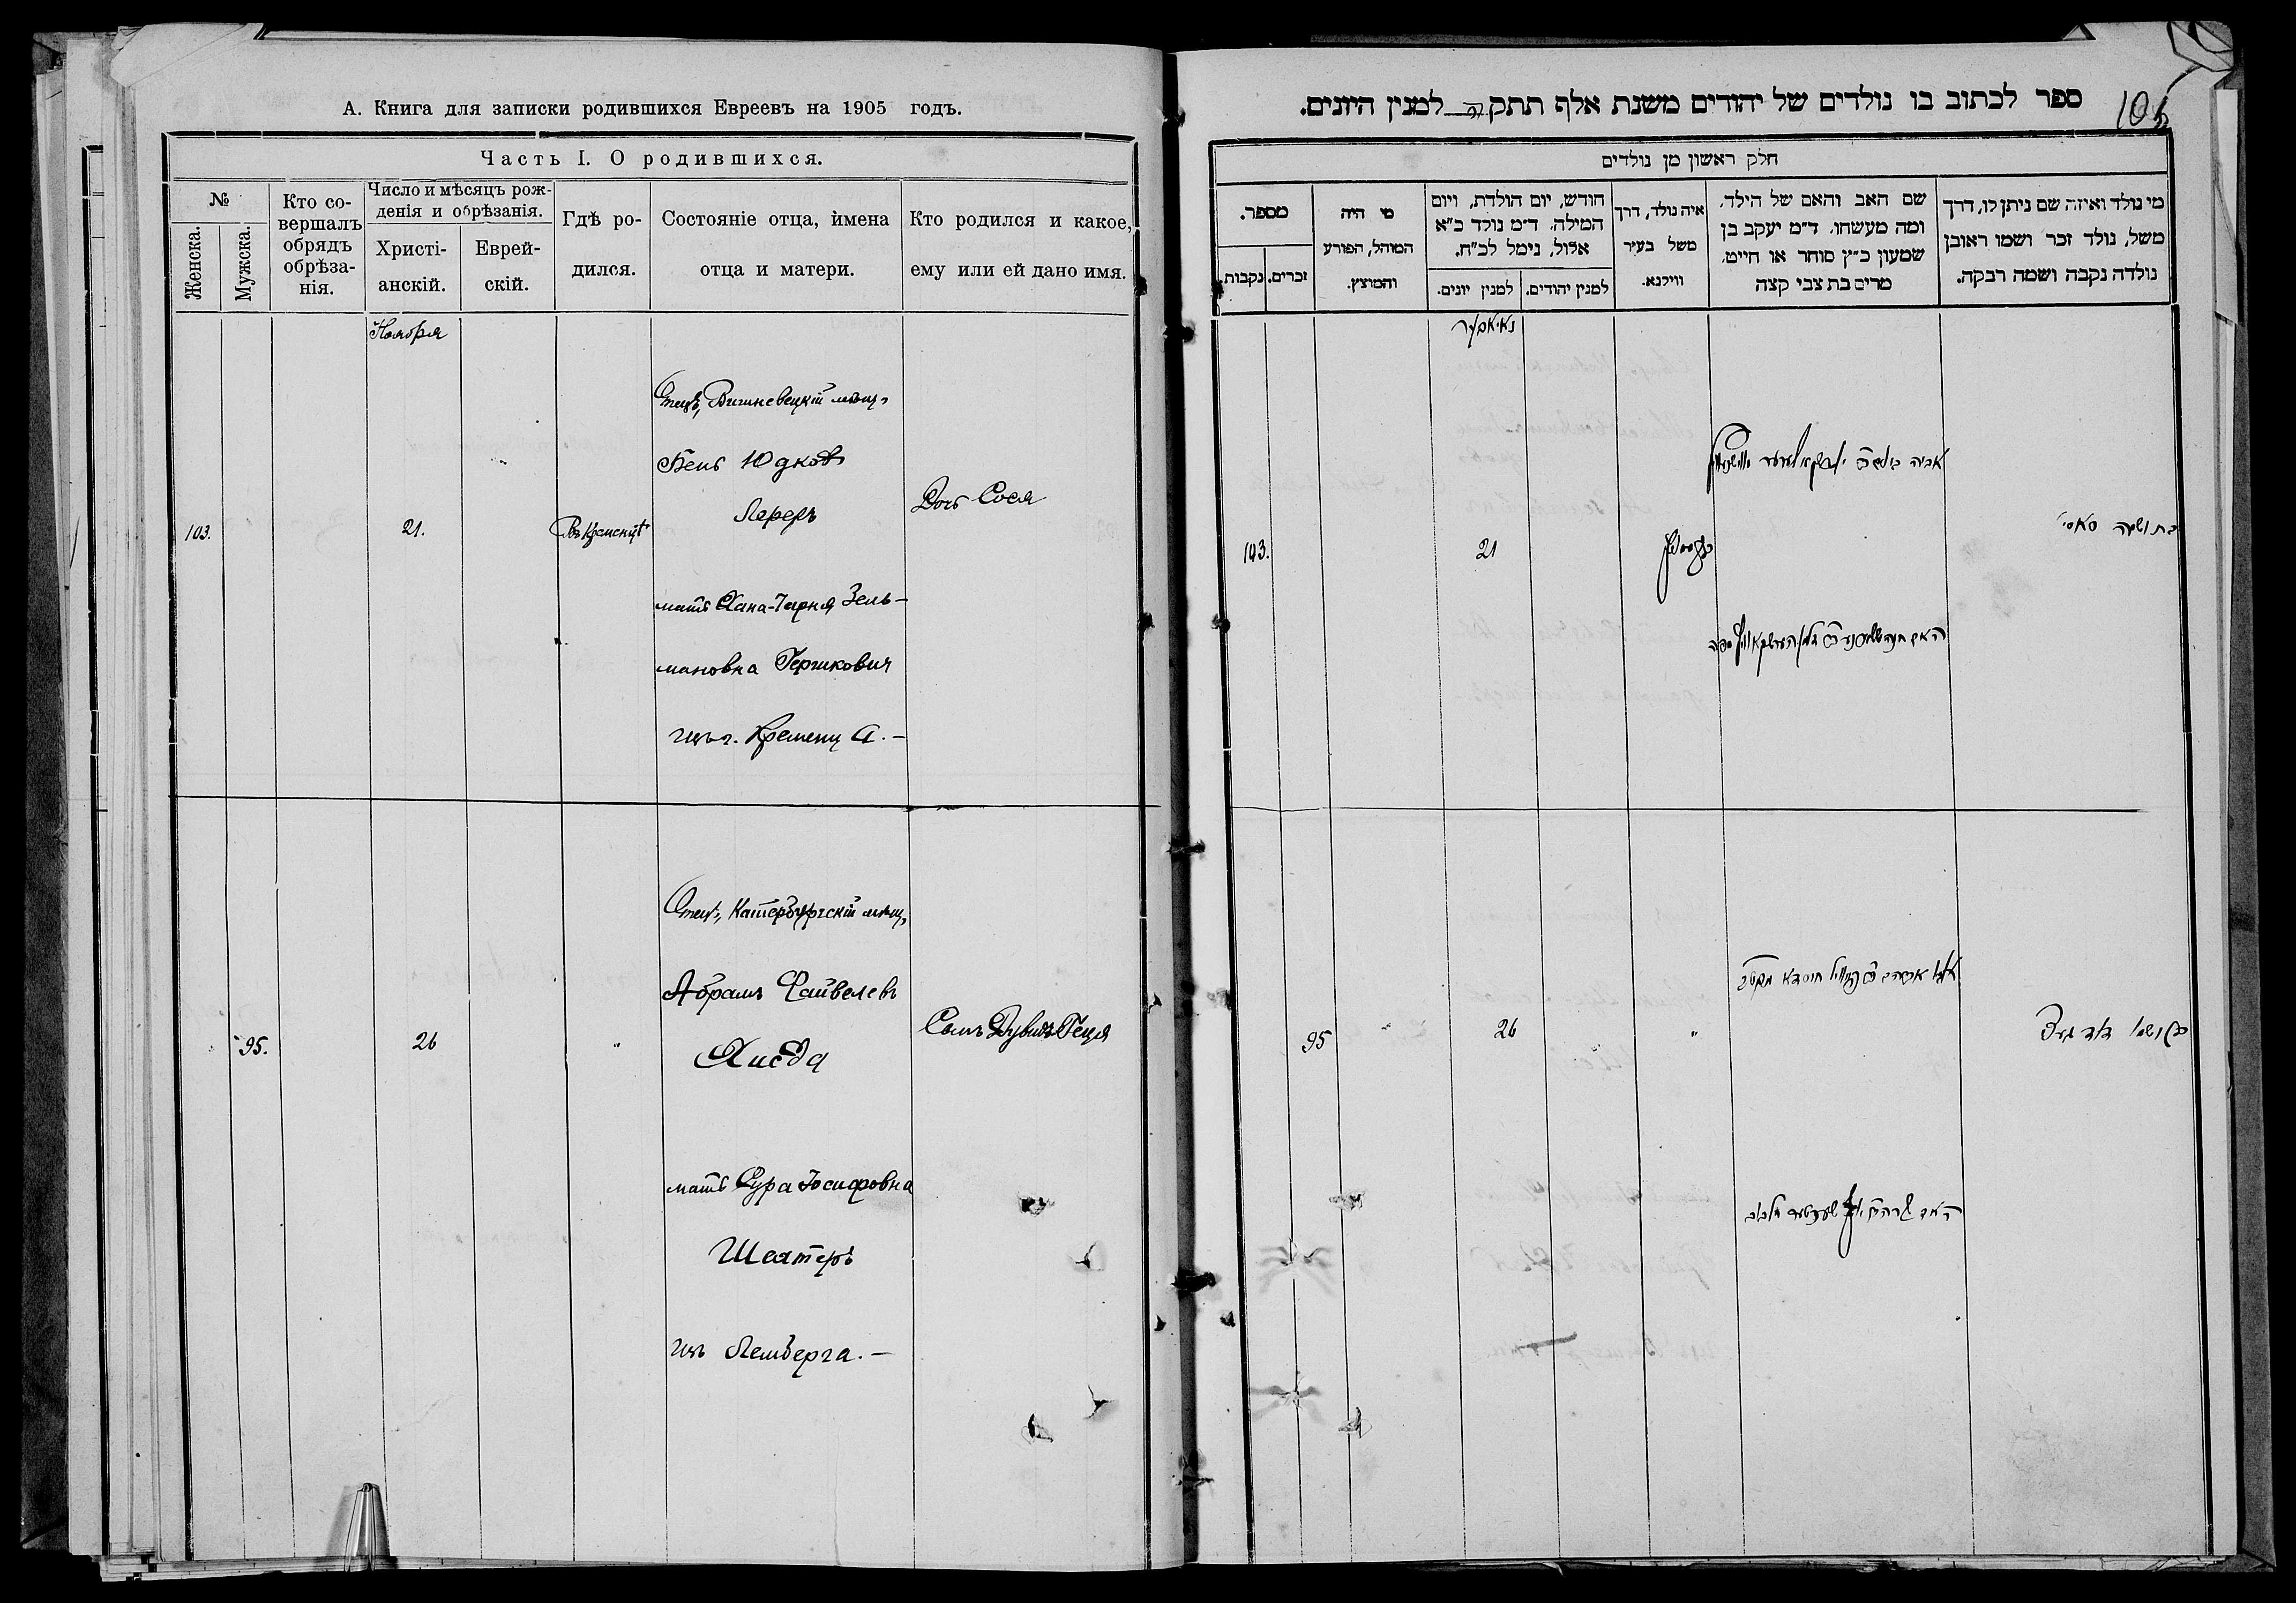 А. Книга для записки родившихся Евреевъ на 1905 годъ.
Часть I. О родившихся.
№
Женска.
Мужска.
Кто со-
вершалъ
обрядъ
обрѣза-
нія.
Число и мѣсяцъ рож-
денія и обрѣзанія.
Христі-
анскій.
Еврей-
скій.
Гдѣ ро-
дился.
Состояніе отца, имена
отца и матери.
Кто родился и какое,
ему или ей дано имя.
Ноября
103.
21.
Въ Кременцѣ
Отецъ, Вишневецкій мѣщ.
Бень Юдковъ
Лереръ
мать Хана-Черня Зель-
мановна Гершкович
изъ г. Кременца.-
Дочь Сося
95.
26
"
Отецъ, Катербургскій мѣщ.
Абрамъ Файвелевъ
Хисда
мать Сура Іосифовна
Шехтеръ
изъ Лемберга.-
Сынъ Дувидъ Геця
ספר לכתוב בו נולדים של יהודים משנת אלף תתק למנין היונים.
105
חלק ראשון מן נולדים
מי נולד ואיזה שם ניתן לו, דרך
משל, נולד זכר ושמו ראובן
נולדה נקבה ושמה רבקה.
שם האב והאם של הילד,
ומה מעשהו. ד״מ יעקב בן
שמעון כ״ץ סוחר או חייט,
מרים בת צבי קצה
איה נולד, דרך
משל בעיר
ווילנא.
חודש, יום הולדת, ויום
המילה, ד״מ נולד כ״א
אלול, נימל לכ״ח.
למנין יהודים.
למנין יונים.
מי היה
המוהל, הפורע
והמוצץ.
מספר.
זכרים.
נקבות.
נאיאבער
בת ושמה סאסי
21
103.
בן ושמו דוד געץ
"
26
95